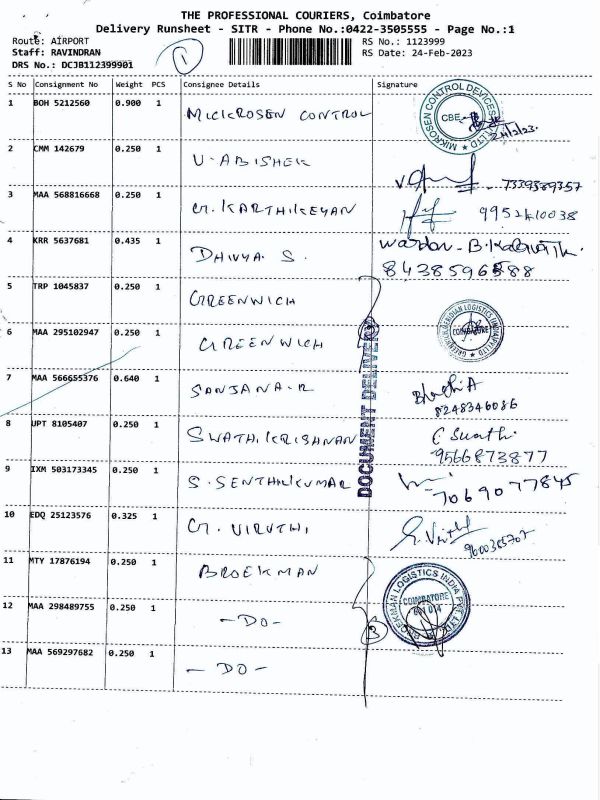 THE PROFESSIONAL COURIERS, Coimbatore
Delivery Runsheet - SITR - Phone No.:0422-3505555 - Page No.:1
Route: AIRPORT
Staff: RAVINDRAN
DRS No.: DCJB112399901
1
RS No.: 1123999
RS Date: 24-Feb-2023
S No Consignment No Weight PCS Consignee Details Signature
1 BOH 5212560 0.900 1 MICKROSEN CONTROL
MIKROSEN CONTROL DEVICES PVT LTD
CBE
24/2/23.
2 CMM 142679 0.250 1 U. ABISHEK
7339389357
3 MAA 568816668 0.250 1 G. KARTHIKEYAN
4 KRR 5637681 0.435 1 DHIVYA. S.
8438596588
5 TRP 1045837 0.250 1 GREENWICH
COIMBATORE
6 MAA 295102947 0.250 1 GREENWICH
7 MAA 566655376 0.640 1 SANJANA-R
8248346086
DOCUMENT DELIVERY
8 UPT 8105407 0.250 1 SWATHI KRISHNAN
9566873877
9 IXM 503173345 0.250 1 S. SENTHILKUMAR
7069077845
10 EDQ 25123576 0.325 1 G. VIRUTHI
11 MTY 17876194 0.250 1 BROEKMAN
BROEKMAN LOGISTICS INDIA PVT LTD
COIMBATORE
12 MAA 298489755 0.250 1 - DO -
3
13 MAA 569297682 0.250 1 - DO -